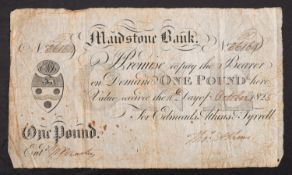 Maidstone Bank.
No
No
I Promise to pay the Bearer
on Demand ONE POUND here
Value received the day of October 1825
For Edmonds, Atkins & Tyrrell
One Pound.
Entd